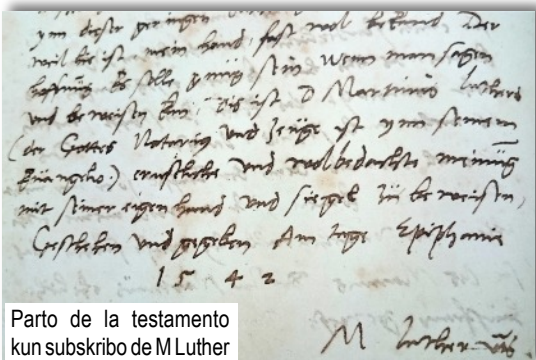 ynn dieser geringen
weil hie ist mein hand, fast wol bekand Der
hoffnung Es solle gnug sein wenn man sagen
und beweisen kan, Dis ist D Martinus Luthers
(der Gottes Notarius und Zeuge ist ynn seinem
Euangelio) ernstliche und wolbedachte meinung
mit seiner eigen hand und siegel zu beweisen,
Geschehen und gegeben Am tage Epiphanie
1542
M Luther
Parto de la testamento
kun subskribo de M Luther